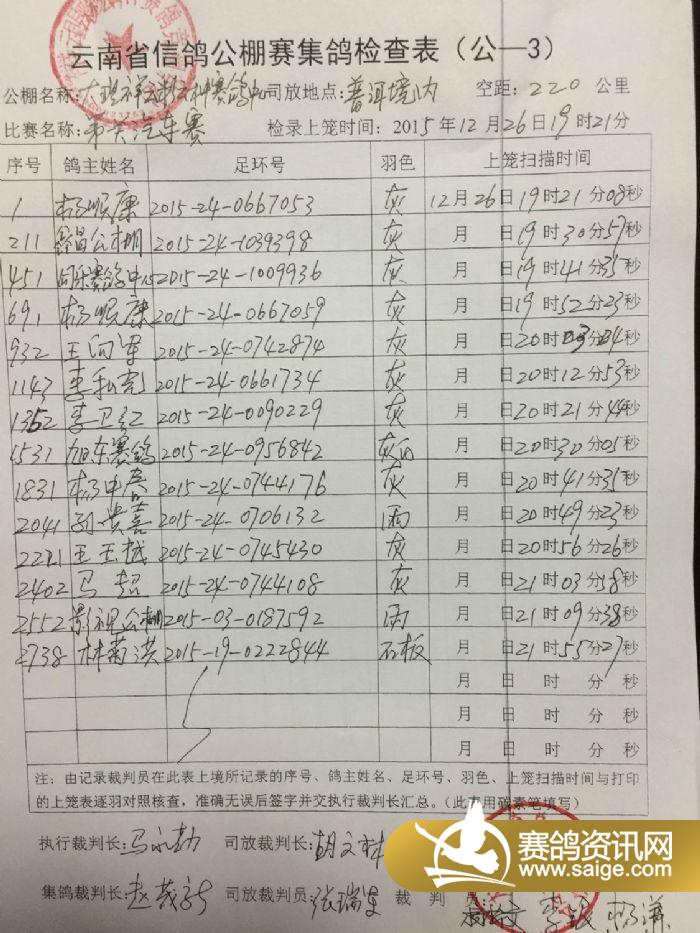 云南省信鸽公棚赛集鸽检查表（公—3）
公棚名称: 大理祥云 赛鸽中心 司放地点: 普洱境内 空距: 220 公里
比赛名称: 汽车赛 检录上笼时间: 2015年12月26日19时21分
序号 鸽主姓名 足环号 羽色 上笼扫描时间
1 杨顺康 2015-24-0667053 灰 12月26日19时21分08秒
211 公棚 2015-24-1039398 灰 月 日19时30分57秒
451 赛鸽中心 2015-24-1009936 灰 月 日19时41分35秒
691 杨顺康 2015-24-0667059 灰 月 日19时52分23秒
932 王向军 2015-24-0742874 灰 月 日20时03分04秒
1143 李 2015-24-0661734 灰 月 日20时12分53秒
1352 李卫红 2015-24-0090229 灰 月 日20时21分44秒
1531 旭东赛鸽 2015-24-0956842 灰 月 日20时30分05秒
1831 杨中 2015-24-0744176 灰 月 日20时41分35秒
2041 孙贵嘉 2015-24-0706132 雨 月 日20时49分23秒
2221 王玉越 2015-24-0745430 灰 月 日20时56分26秒
2402 马超 2015-24-0744108 灰 月 日21时03分58秒
2552 影视公棚 2015-03-0187592 雨 月 日21时09分38秒
2738 林菊洪 2015-19-0222844 石板 月 日21时55分27秒
月 日 时 分 秒
月 日 时 分 秒
月 日 时 分 秒
注：由记录裁判员在此表上境所记录的序号、鸽主姓名、足环号、羽色、上笼扫描时间与打印
的上笼表逐羽对照核查，准确无误后签字并交执行裁判长汇总。（此表用碳素笔填写）
执行裁判长: 马永勤 司放裁判长: 胡文林
集鸽裁判长: 赵茂新 司放裁判员: 张瑞生 裁判员: 李银 杨谦
赛鸽资讯网
www.saige.com